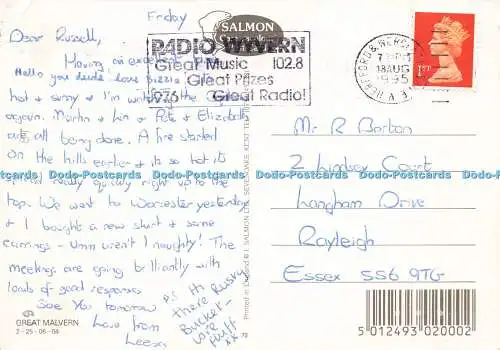 Friday
Dear Russell,
Having an excellent
Hello you dude love pizza
hot & sunny & I'm writing the
again. Martin & Lin & Pete & Elizabeth
are all being done. A fire started
on the hills earlier & its so hot it
spread really quickly right up to the
top. We went to Worcester yesterday
& I bought a new skirt & some
earrings - Umm weren't I naughty! The
meetings are going brilliantly with
loads of good responses
See You tomorrow
Love from
P.S Hi
there
SALMON
RADIO WYVERN
Great Music 102.8
Great Prizes
976 Great Radio!
HEREFORD & WORCS
18 AUG
1995
1ST
Mr R Barton
2 Lindsey Court
Langham Drive
Rayleigh
Essex SS6 9TG
GREAT MALVERN
2-25-06-04
Printed in England © J. SALMON LTD., SEVENOAKS, KENT
5 012493 020002
Dodo-Postcards Dodo-Postcards Dodo-Postcards Dodo-Postcards